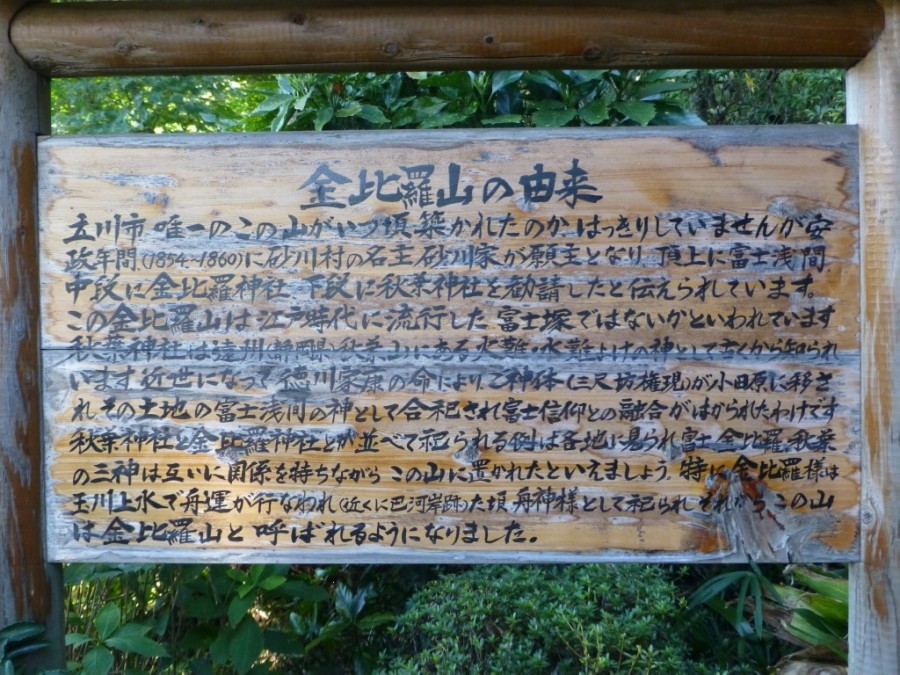 金比羅山の由来
立川市唯一のこの山がいつ頃築かれたのかはっきりしていませんが安
政年間(1854~1860)に砂川村の名主砂川家が願主となり、頂上に富士浅間
中段に金比羅神社、下段に秋葉神社を勧請したと伝えられています。
この金比羅山は江戸時代に流行した富士塚ではないかといわれています
秋葉神社は遠州(静岡県秋葉山)にある火難・水難よけの神として古くから知られ
います近世になって徳川家康の命により、ご神体(三尺坊権現)が小田原に移さ
れその土地の富士浅間の神として合祀され富士信仰との融合がはかられたわけです
秋葉神社と金比羅神社とが並べて祀られる例は各地に見られ富士、金比羅、秋葉
の三神は互いに関係を持ちながらこの山に置かれたといえましょう。特に金比羅様は
玉川上水で舟運が行なわれ(近くに巴河岸跡)た頃舟神様として祀られそれ この山
は金比羅山と呼ばれるようになりました。